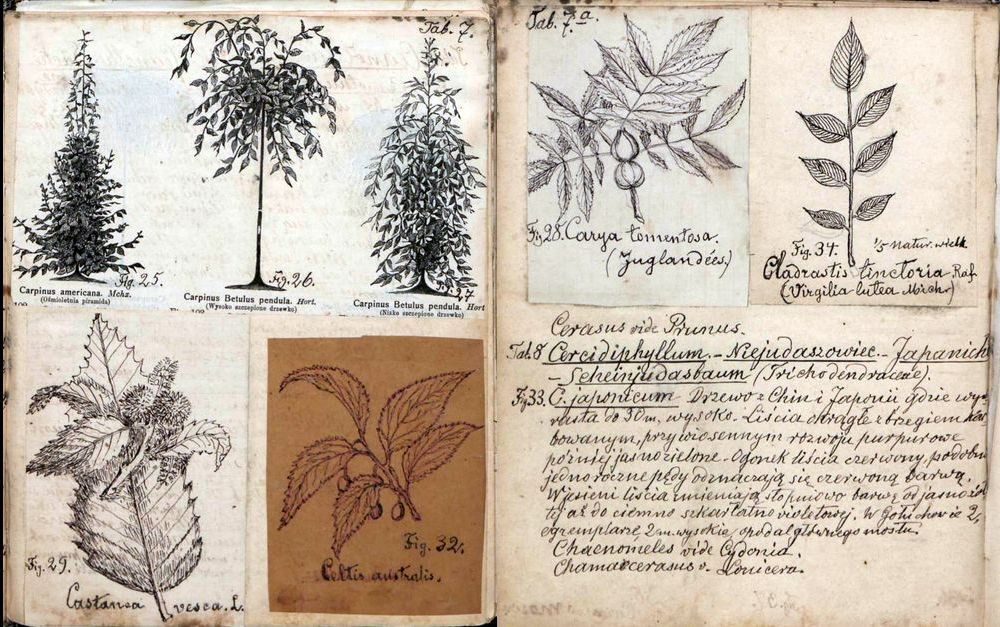 Tab. 7.
Fig. 25.
Fig. 26.
Fig. 27
Carpinus americana. Mchx.
(Ośmioletnia piramida)
Carpinus Betulus pendula. Hort.
(Wysoko szczepione drzewko)
Carpinus Betulus pendula. Hort
(Nisko szczepione drzewko)
Fig. 29.
Castanea vesca. L.
Fig. 32.
Celtis australis.
Tab. 7.a.
Fig. 28. Carya tomentosa.
(Juglandées.)
Fig. 34. 1/5 natur. wielk
Cladrastis tinctoria Raf.
(Virgilia lutea Mirch.)
Cerasus vide Prunus.
Tab. 8 Cercidiphyllum. - Niejudaszowiec. - Japanich
- Scheinjudasbaum (Trichodendraceae).
Fig 33. C. japonicum Drzewo z Chin i Japonii gdzie wy-
rasta do 30 m. wysoko. - Liścia okrągłe z brzegiem kar-
bowanym, przy wiosennym rozwoju purpurowe
później jasnozielone. - Ogonek liścia czerwony, podobni
jednoroczne pędy odznaczają się czerwoną barwą.
W jesieni liścia zmieniają stopniowo barwę od jasnożół
tej aż do ciemno szkarłatno violetowej. W Gołuchowie 2,
egzemplarze 2 m. wysokie, opodal głównego mostu.
Chaenomeles vide Cydonia.
Chamaecerasus v. Lonicera.